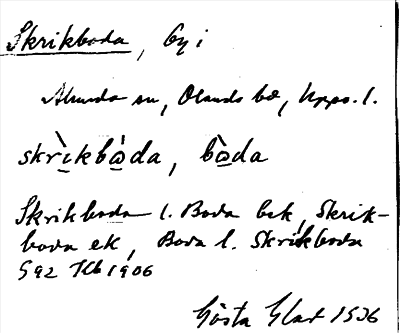 Skrikboda, by i
Alunda sn, Olands hd, Upps. l.
skrìkbo̱da, bò̱da
Skrikboda l. Boda bek, Skrik-
boda ek, Boda l. Skrikboda
592 Kb 1906
Gösta Glas 1936